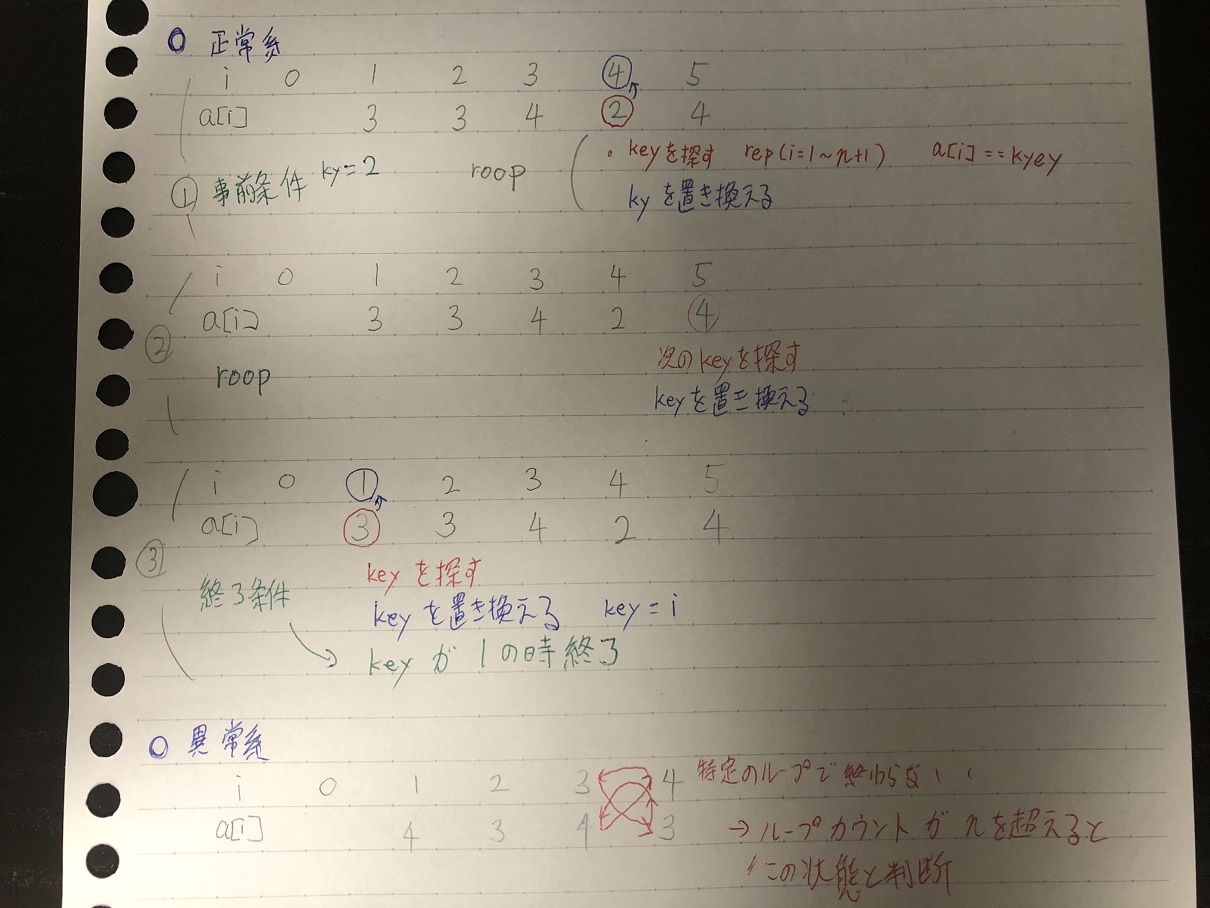 ○ 正常系
i 0 1 2 3 ④ 5
a[i] 3 3 4 ② 4
① 事前条件 ky=2 roop
・keyを探す rep(i=1~n+1) a[i]==kyey
kyを置き換える
i 0 1 2 3 4 5
a[i] 3 3 4 2 ④
②
roop
次のkeyを探す
keyを置き換える
i 0 ① 2 3 4 5
a[i] ③ 3 4 2 4
③
終了条件
keyを探す
keyを置き換える key=i
→ keyが1の時終了
○ 異常系
i 0 1 2 3 4
a[i] 4 3 4 3
特定のループで終わらない
→ループカウントがnを超えると
この状態と判断